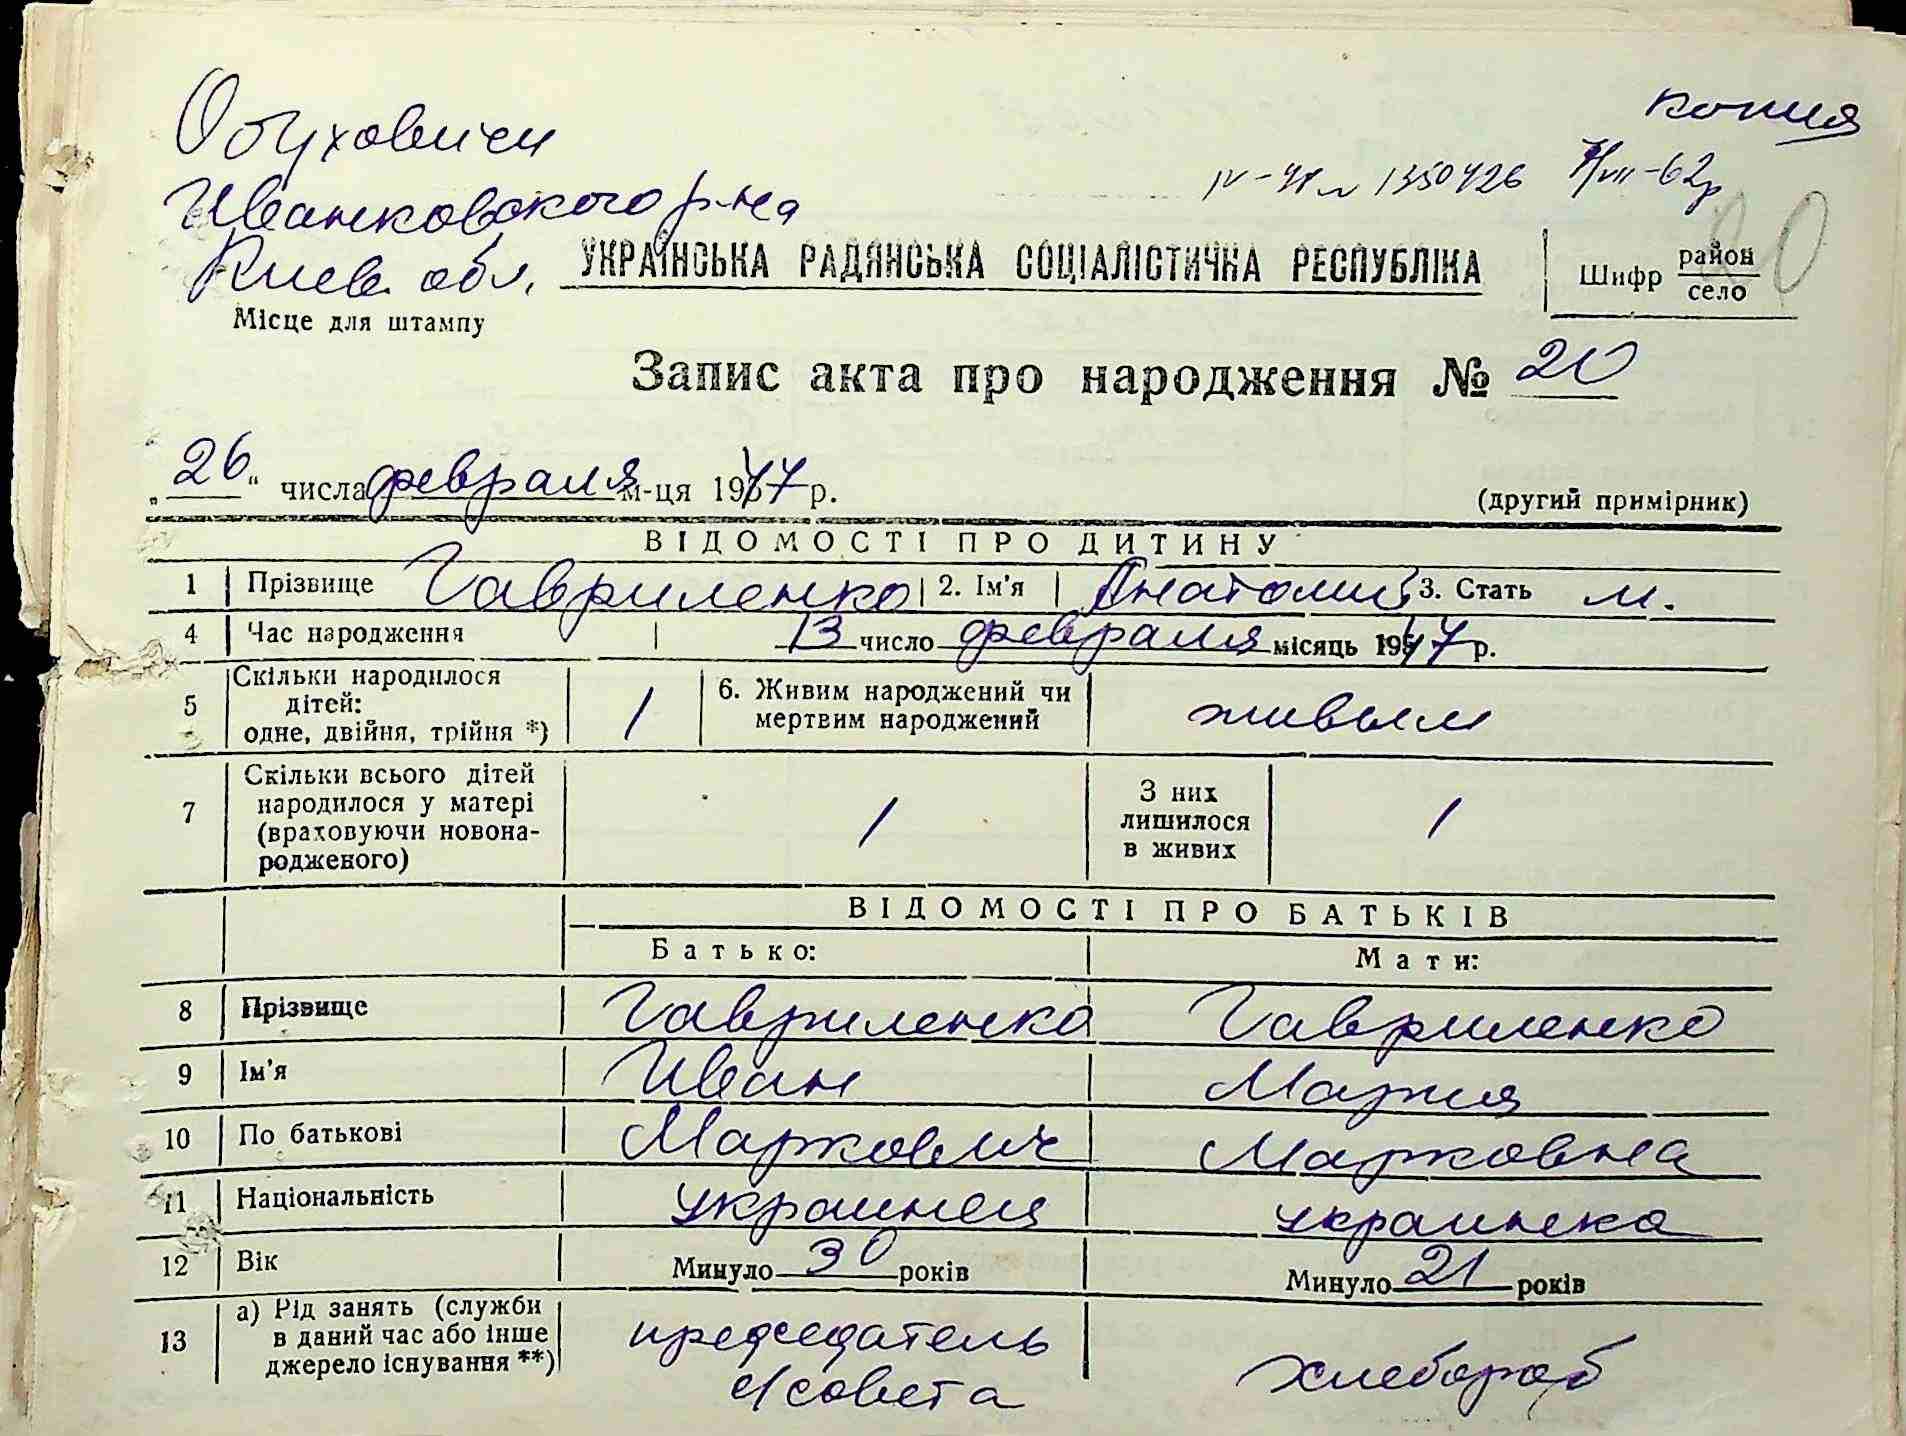 Обуховичи
Иванковского р-на
Киев. обл.
Місце для штампу
копия
IV-УК № 1350426 7/VII-62р
УКРАЇНСЬКА РАДЯНСЬКА СОЦІАЛІСТИЧНА РЕСПУБЛІКА
Шифр район
село
20
Запис акта про народження № 20
„26“ числа февраля м-ця 1947 р.
(другий примірник)
ВІДОМОСТІ ПРО ДИТИНУ
1 Прізвище Гавриленко 2. Ім'я Анатолий 3. Стать м.
4 Час народження 13 число февраля місяць 1947 р.
5 Скільки народилося дітей: одне, двійня, трійня *) 1 6. Живим народжений чи мертвим народжений живым
7 Скільки всього дітей народилося у матері (враховуючи новонародженого) 1 З них лишилося в живих 1
ВІДОМОСТІ ПРО БАТЬКІВ
Батько: Мати:
8 Прізвище Гавриленко Гавриленко
9 Ім'я Иван Мария
10 По батькові Маркович Марковна
11 Національність украинец украинка
12 Вік Минуло 30 років Минуло 21 років
13 а) Рід занять (служби в даний час або інше джерело існування **) председатель с/совета хлебороб